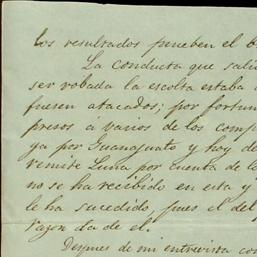 los resultados prueben el b
La conducta que salió
ser robada la escolta estaba
fuesen atacados; por fortun
presos á varios de los comp
ya por Guanajuato y hoy de
remite Luna por cuenta de l
no se ha recibido en esta y
le ha sucedido, pues el del
razon da de el.
Despues de mi entrevista con